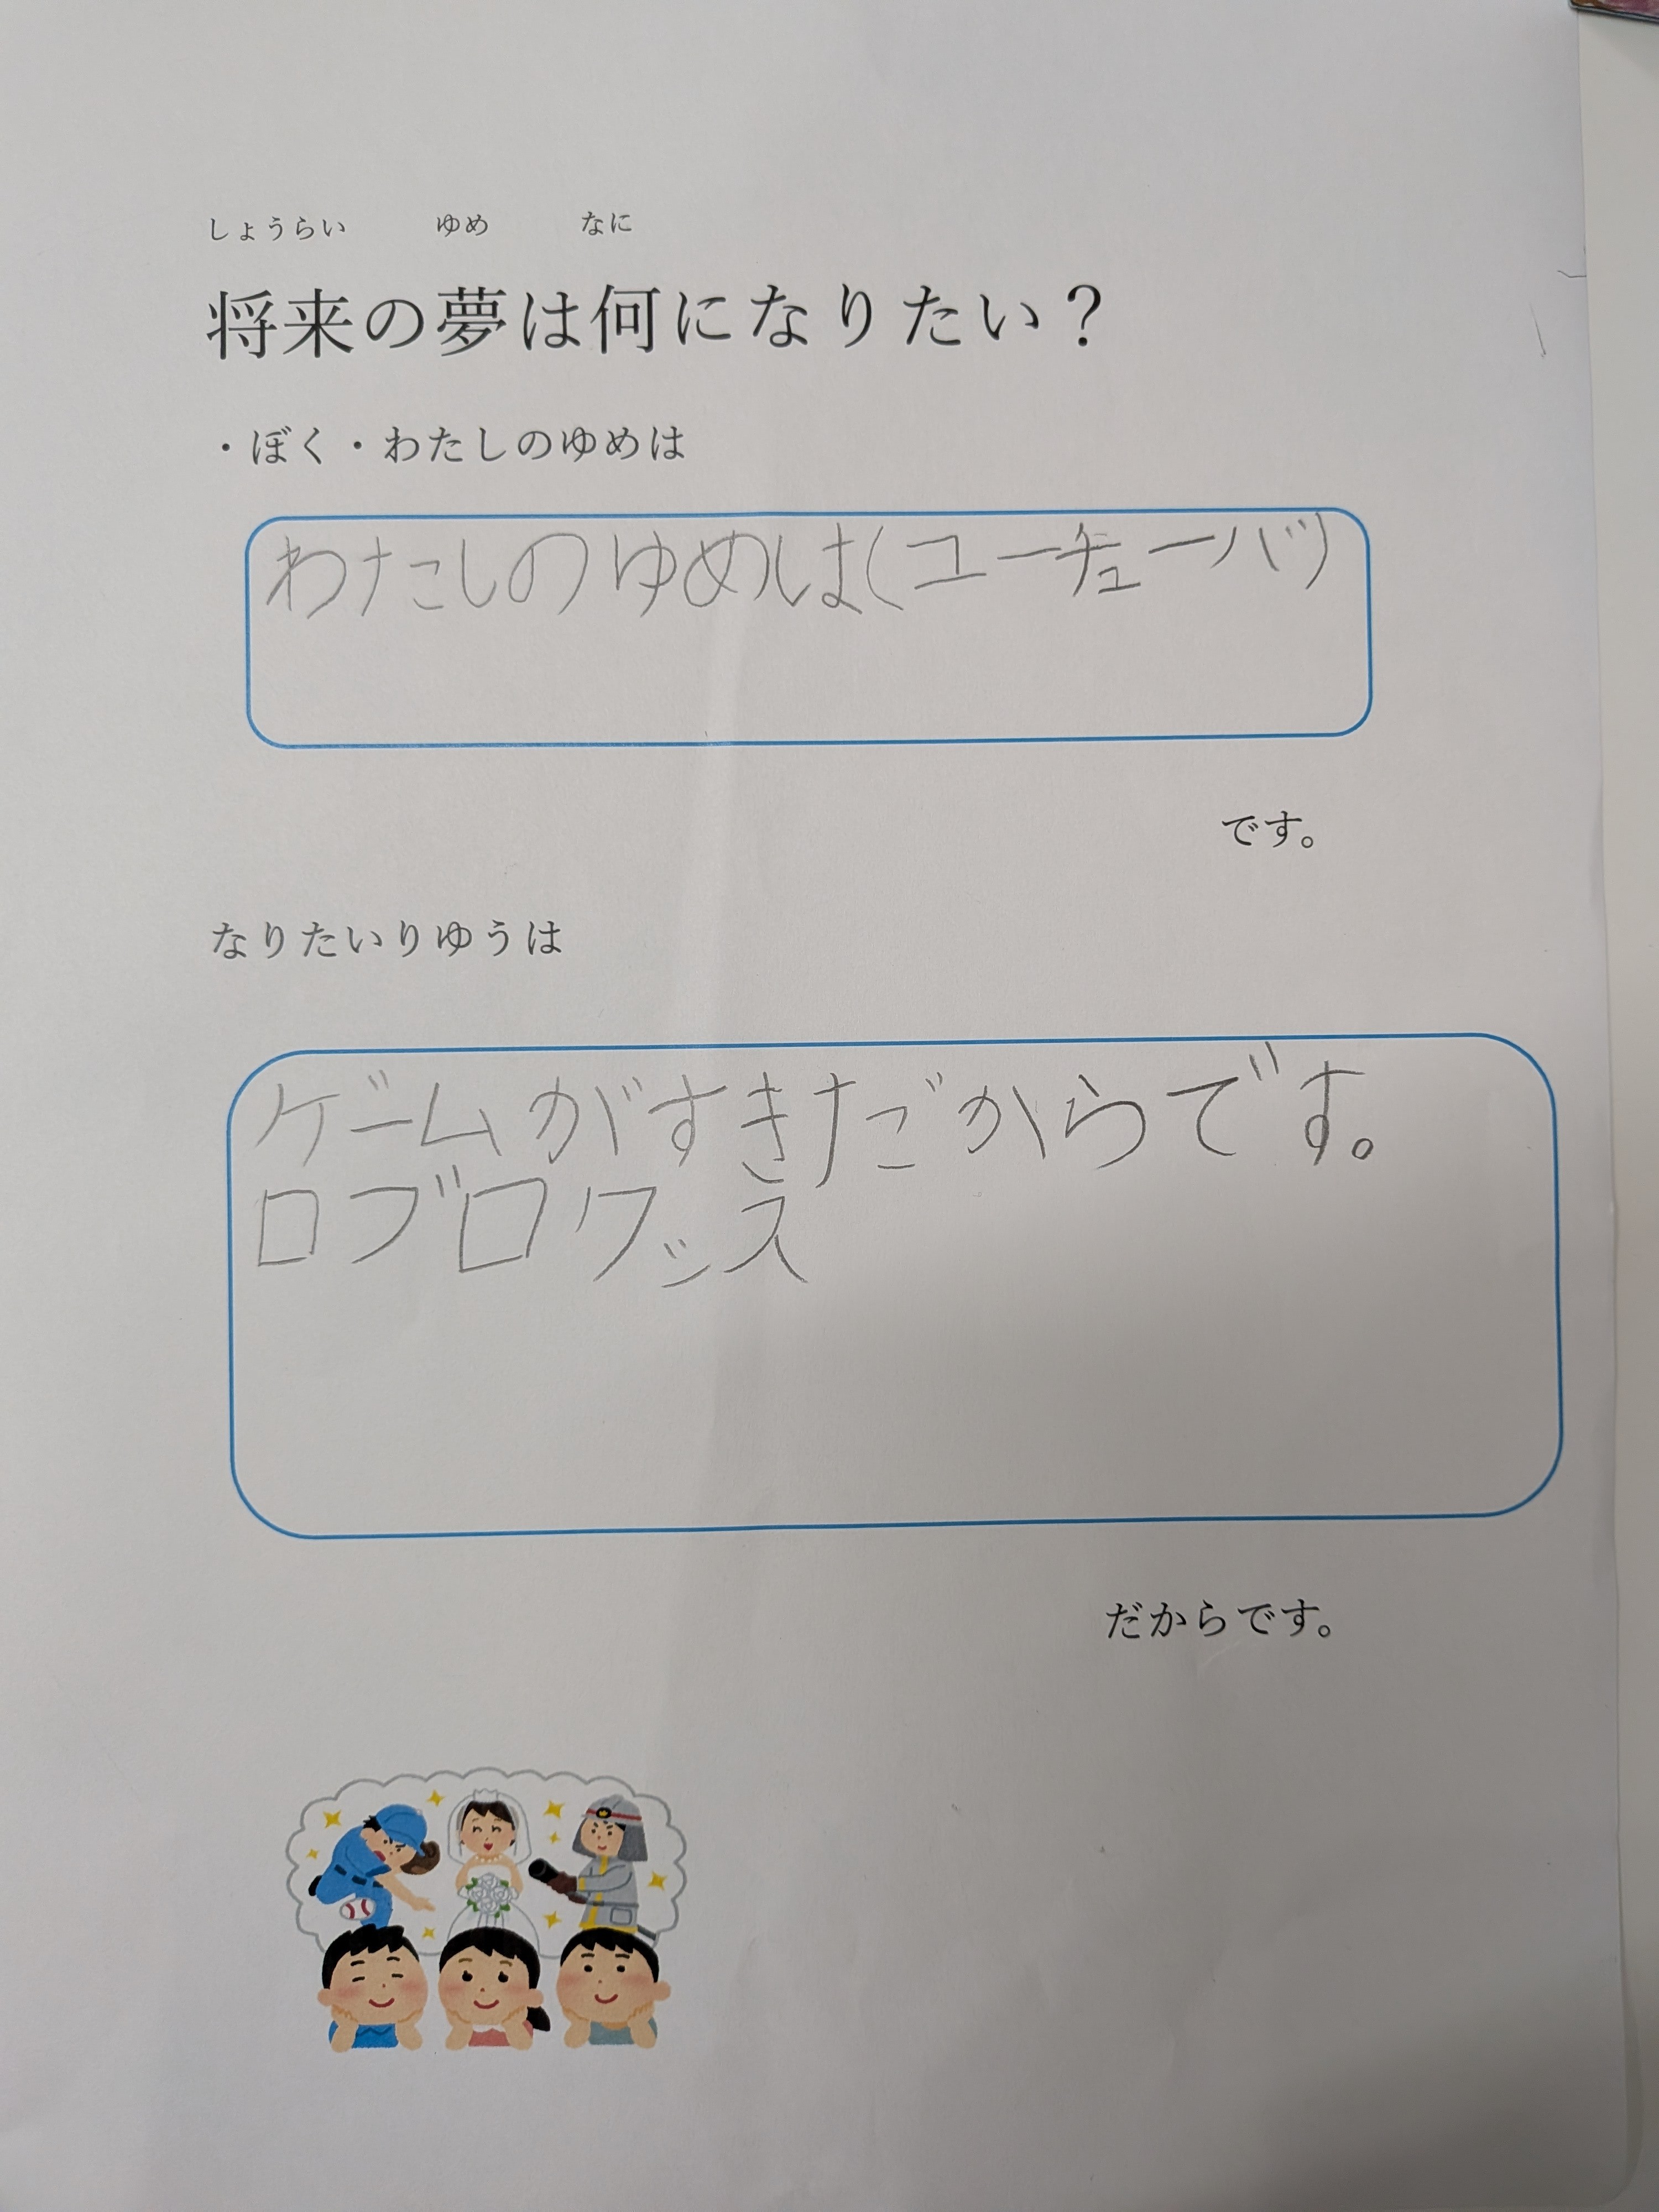 しょうらい ゆめ なに
将来の夢は何になりたい？
・ぼく・わたしのゆめは
わたしのゆめは(ユーチューバ)
です。
なりたいりゆうは
ゲームがすきだからです。
ロブロワッス
だからです。